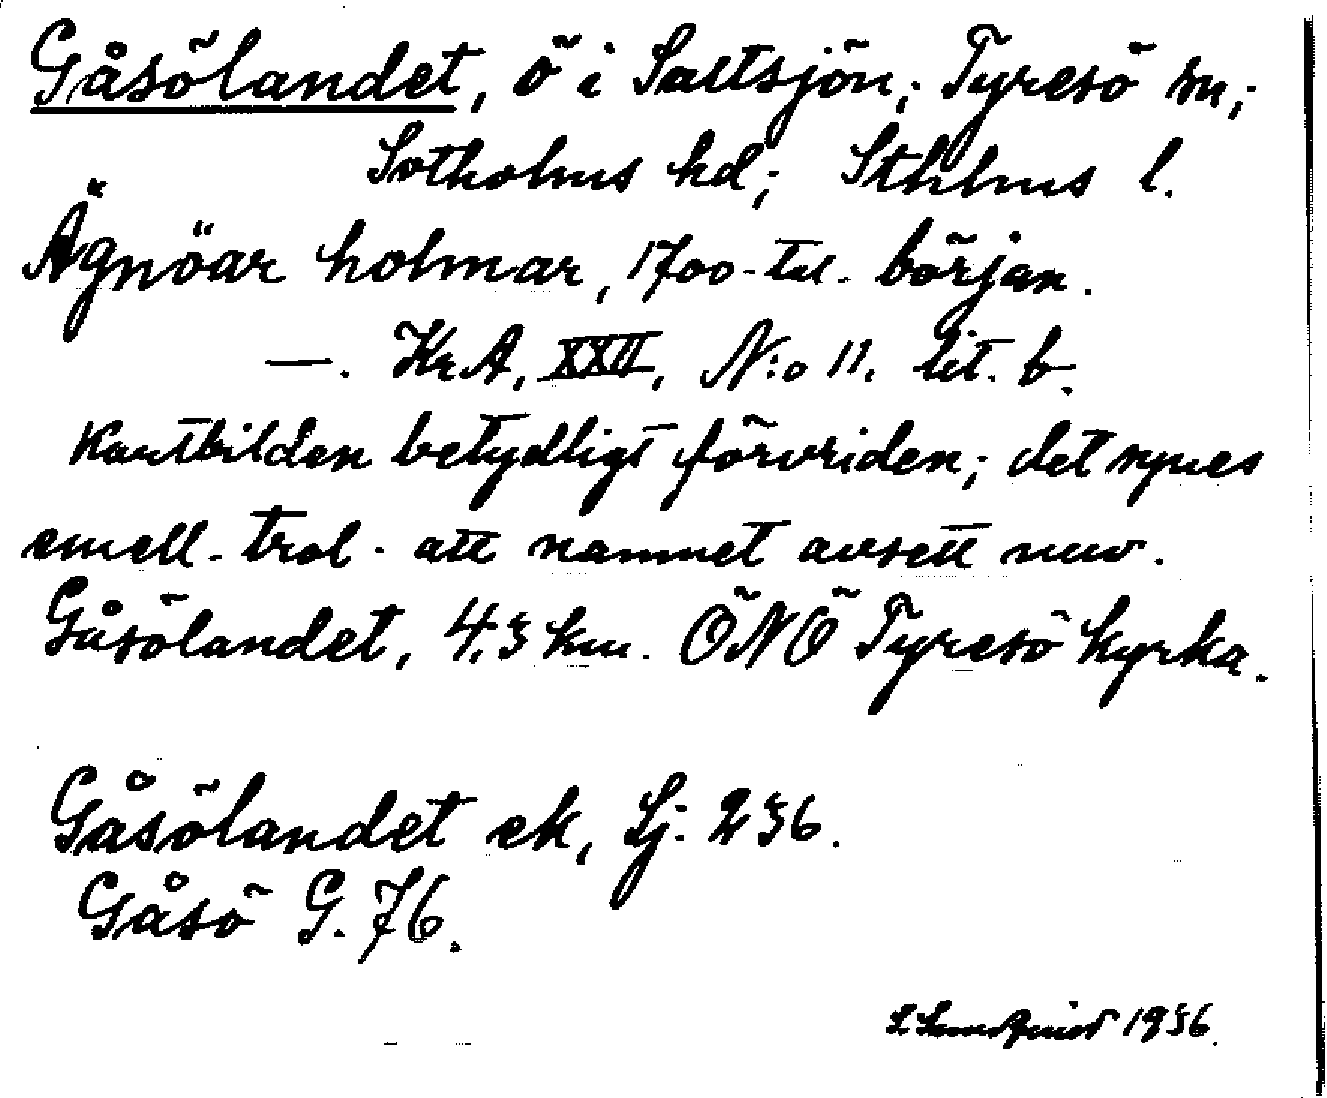 Gåsölandet, ö i Saltsjön; Tyresö sn;
Sotholms hd; Sthlms l.
Ägnöar holmar, 1700-tal. början.
—. Kr.A, XXII, N:o 11. lit. b.
Kartbilden betydligt förvriden; det synes
emell. trol. att namnet avsett nuv.
Gåsölandet, 4,3 km. ÖNÖ Tyresö kyrka.
Gåsölandet ek, Lj. 236.
Gåsö G. 76.
1936.